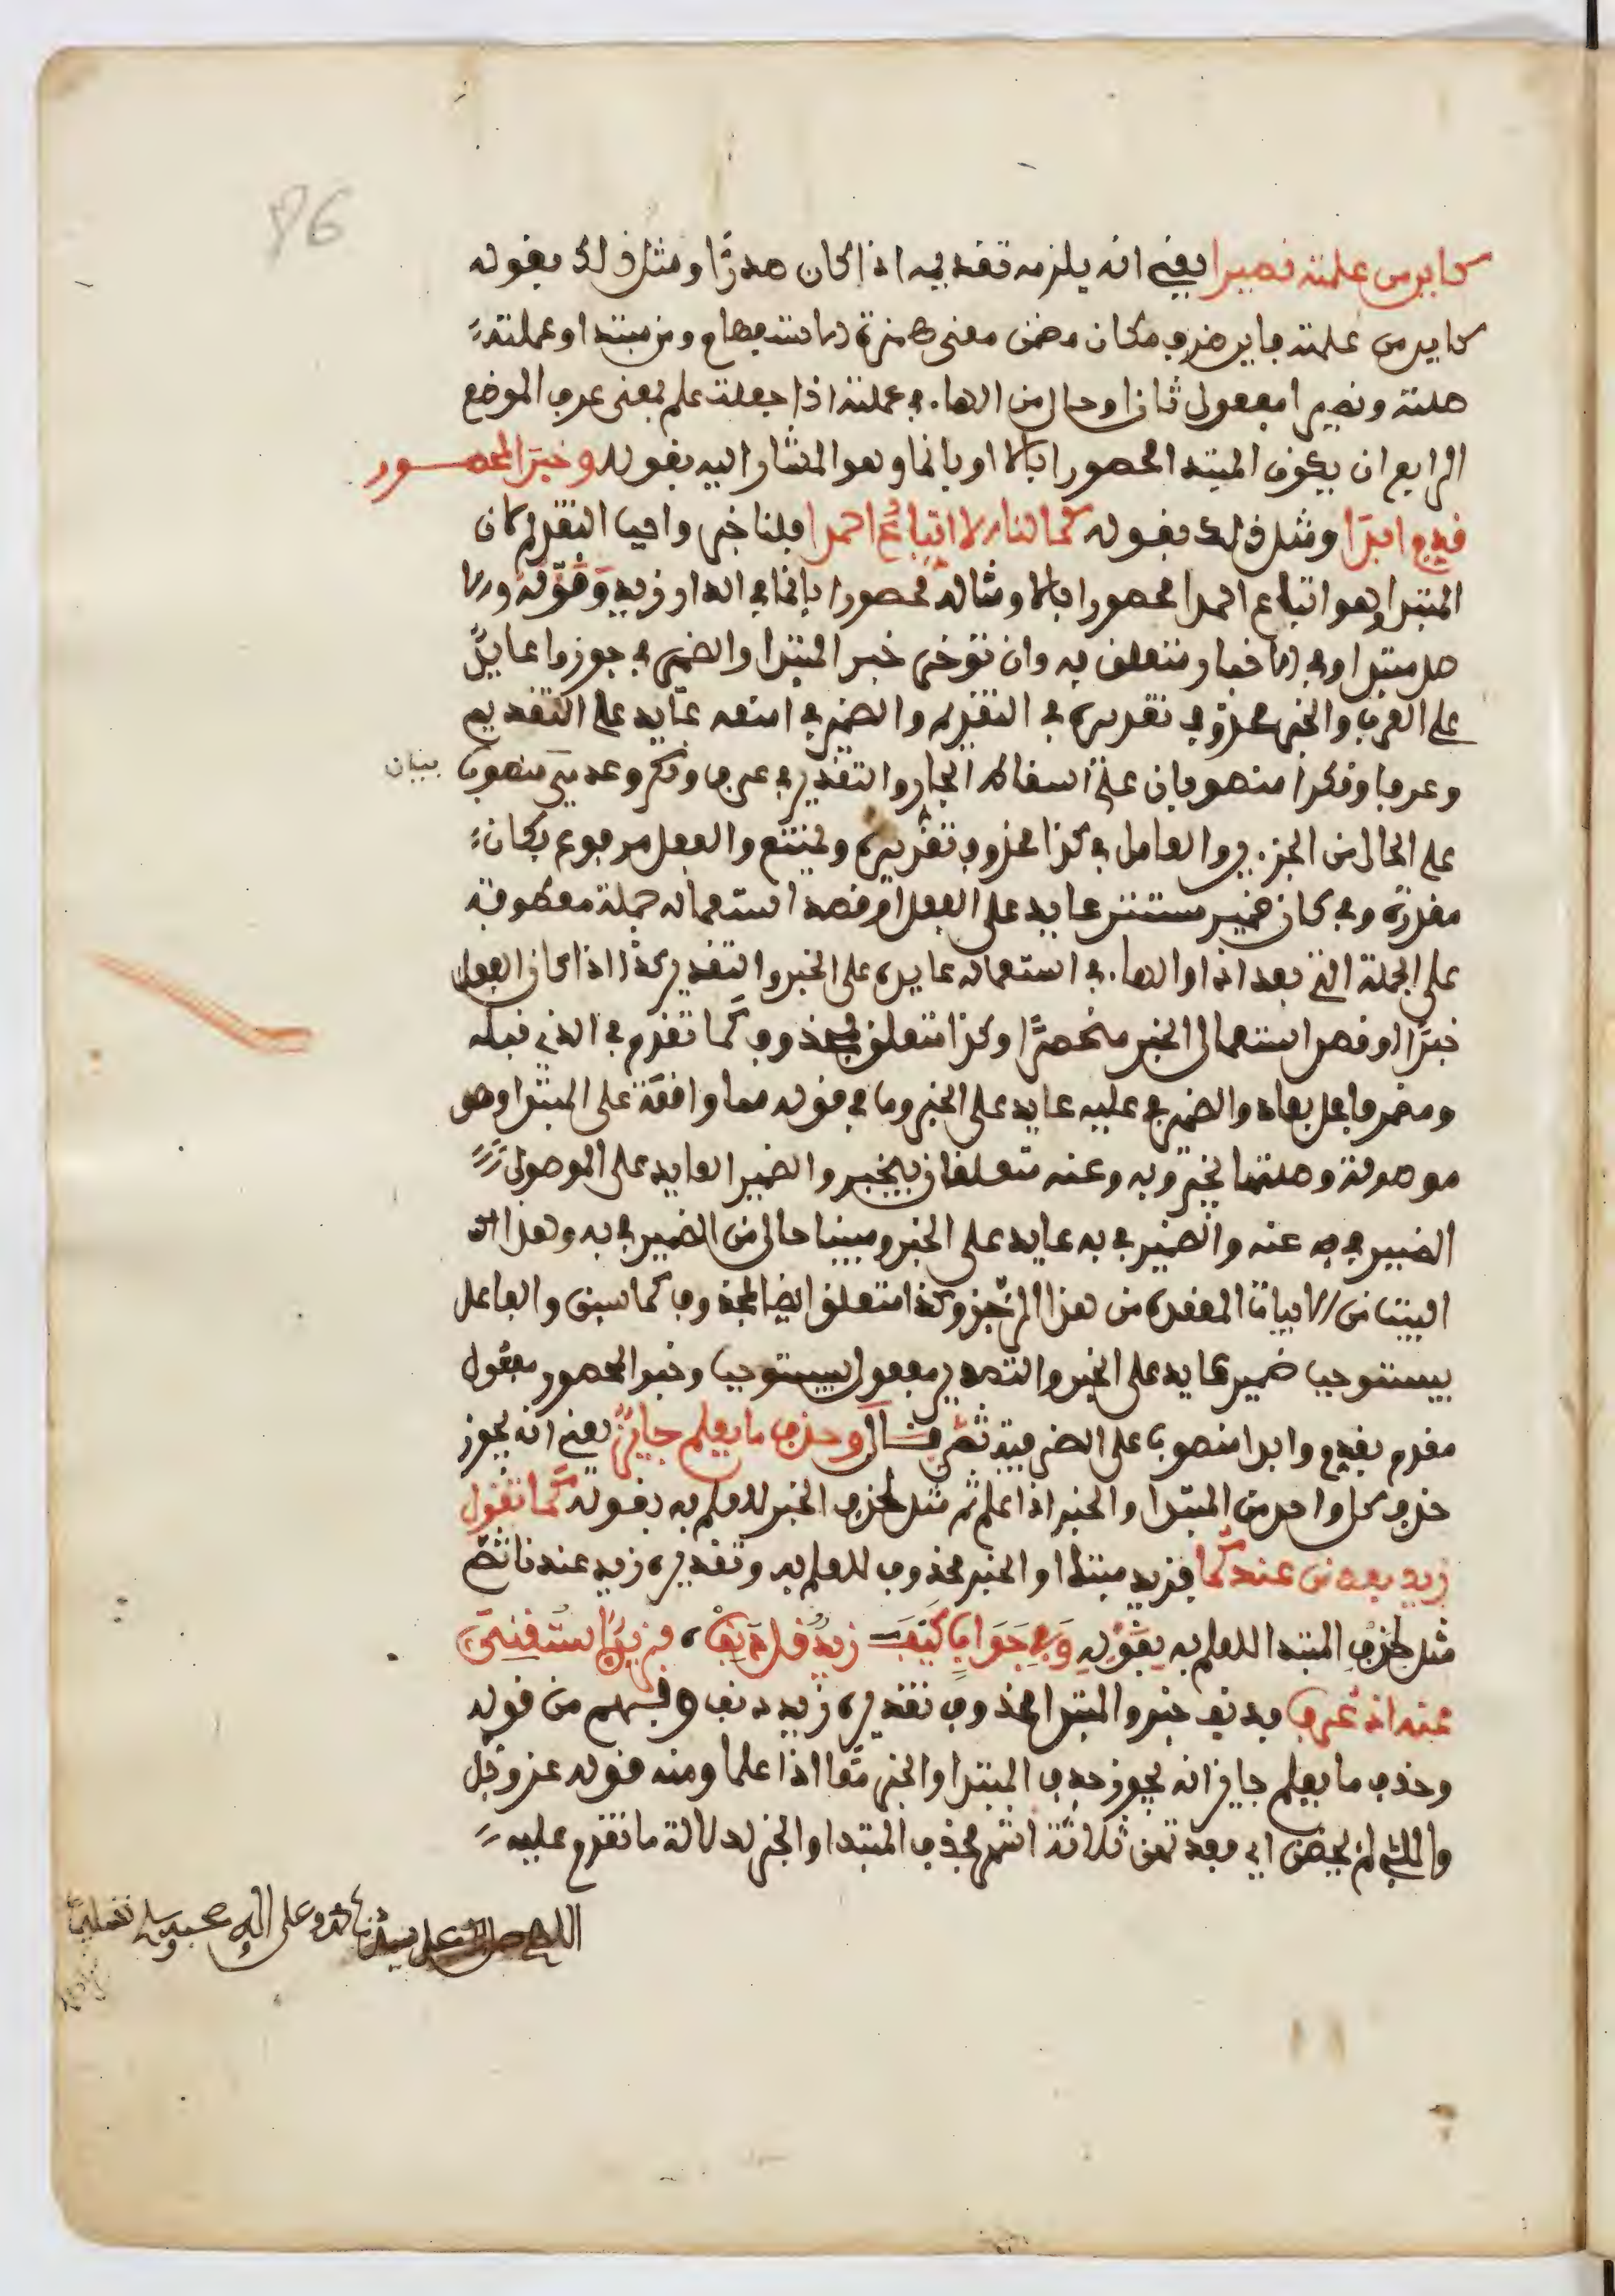 86
كاين من علمته نصيرا يعني انه يلزمه تقديمه اذا كان صدرًا ومثل ذلك بقوله
كاين من علمته فاين ظرف مكان مضمن معنى همزة الاستفهام ومن مبتدا وعلمته
صلته ونصيرا مفعول ثان او حال من الهاء في علمته اذا جعلت علم بمعنى عرف الموضع
الرابع ان يكون المبتدا محصورا بالا او بانما وهو المشار اليه بقوله وخبر المحصور
قدم ابدا ومثل ذلك بقوله كما لنا الا اتباع احمدا فلنا خبر واجب التقديم لان
المبتدا وهو اتباع احمدا محصورا بالا ومثاله محصورا بانما في الدار زيد وقوله والا
صل مبتدا وفي الاخبار متعلق به وان تؤخر خبر المبتدا والضمير في جوزوا عايد
على العرب والخبر محذوف تقديره في التقديم والضمير في امنعه عايد على التقديم
وعرفا ونكرا منصوبان على اسقاط الجار والتقدير في عرف ونكر وعدمي منصوب بيان
على الحال من الجزءين والعامل في كذا محذوف تقديره ويمتنع والفعل مرفوع بكان
مقدرة وفي كان ضمير مستتر عايد على الفعل او قصد استعماله جملة معطوفة
على الجملة التي بعد اذا والهاء في استعماله عايده على الخبر والتقدير كذا اذا كان الفعل
خبرًا او قصد استعمال الخبر منحصرًا وكذا متعلق بمحذوف كما تقدم في الذي قبله
ومضمر فاعل بعاد والضمير في عليه عايد على الخبر وما في قوله مما واقعة على المبتدا وهو
موصولة وصلتها يخبر وبه وعنه متعلقان بيخبر والضمير العايد على الموصول
الضمير في به عنه والضمير في به عايد على الخبر ومبينا حال من الضمير في به وهذا
البيت من الابيات المعقدة من هذا الرجز وكذا متعلق ايضا بمحذوف كما سبق والفاعل
بيستوجب ضمير عايد على الخبر والتصدير مفعول بيستوجب وخبر المحصور مفعول
مقدم بقدم وابدا منصوب على الظرفية ثم قال وحذف ما يعلم جايز يعني انه يجوز
حذف كل واحد من المبتدا والخبر اذا علم ثم مثل لحذف الخبر للعلم به بقوله كما تقول
زيد بعد من عندكما فزيد مبتدا والخبر محذوف للعلم به وتقديره زيد عندنا ثم
مثل لحذف المبتدا للعلم به بقوله وفي جواب كيف زيد قل دنف فزيد استغني
عنه اذ عرف فدنف خبر والمبتدا محذوف تقديره زيد دنف وفهم من قوله
وحذف ما يعلم جايز انه يجوز حذف المبتدا والخبر معا اذا علما ومنه قوله عز وجل
والئي لم يحضن اي فعدتهن ثلاثة اشهر فحذف المبتدا والخبر لدلالة ما تقدم عليه
اللهم صل على سيدنا محمد وعلى اله وصحبه وسلم تسليما